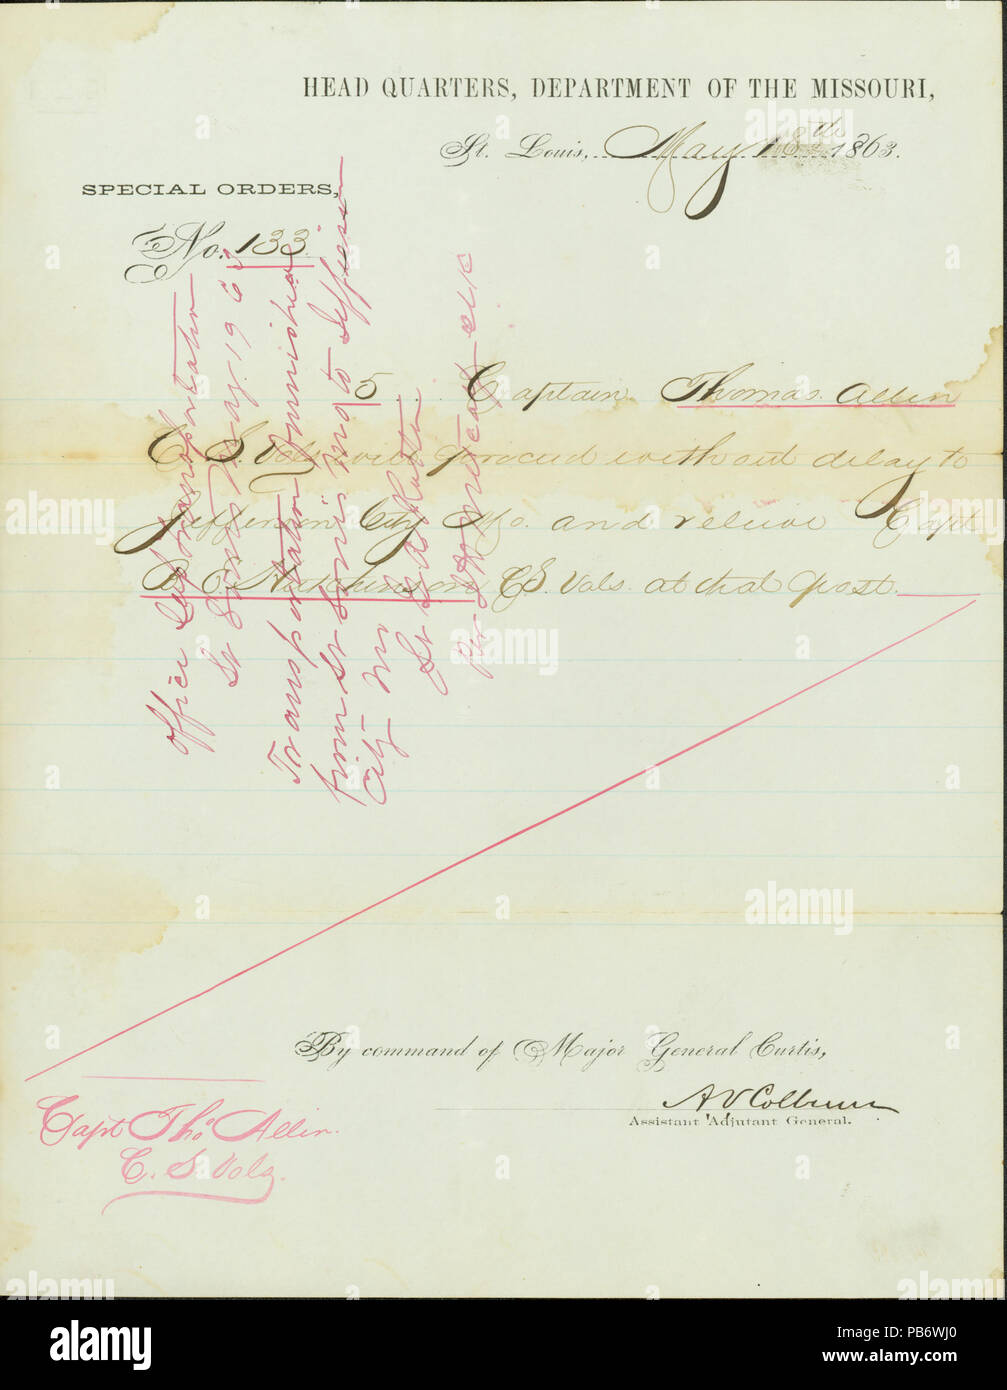 HEAD QUARTERS, DEPARTMENT OF THE MISSOURI,
St. Louis, May 18th 1863.
SPECIAL ORDERS,
No. 133.
5... Captain Thomas Allin
C. S. Vols. will proceed without delay to
Jefferson City Mo. and relieve Capt
Hutchinson C.S. Vols. at that post.
By command of Major General Curtis,
A V Colburn
Assistant Adjutant General.
Capt Thos Allin.
C. S. Vols.
Office Transportation
St Louis May 19 63
Transportation furnished
from St Louis Mo to Jefferson
City Mo
alamy
alamy
Image ID: PB6WJ0
www.alamy.com